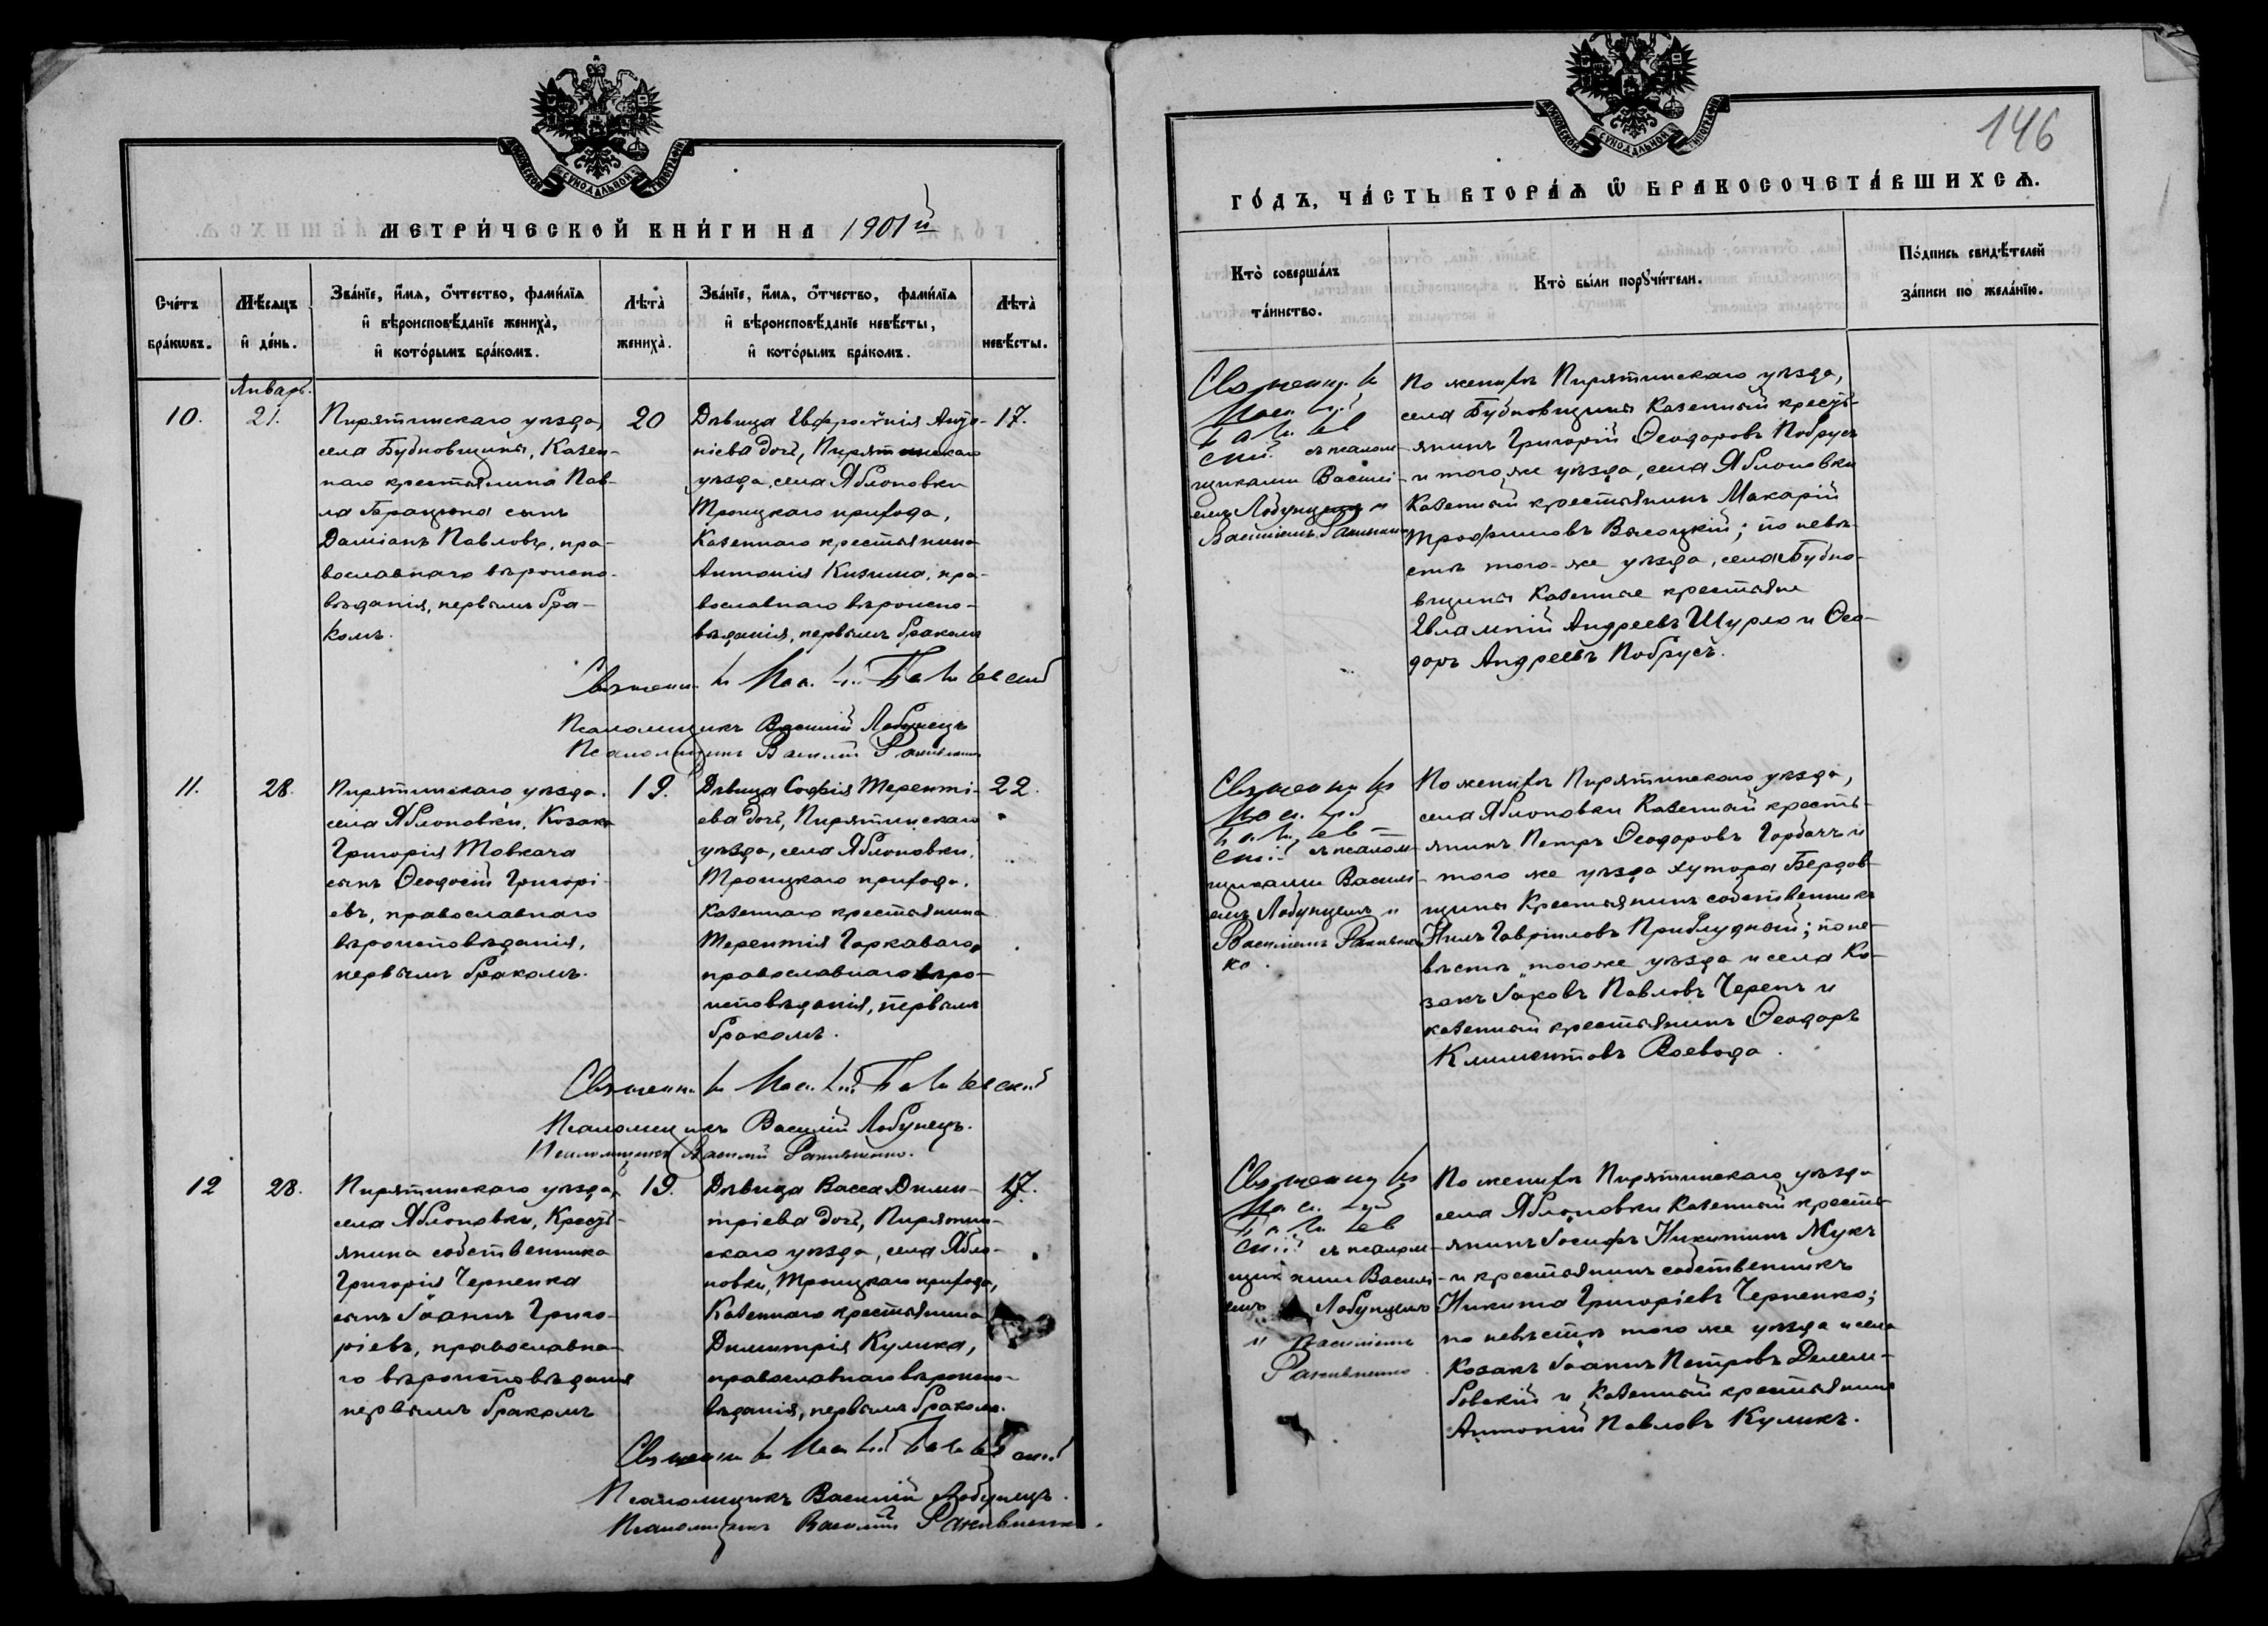 МОСКОВСКОЙ СѴНОДАЛЬНОЙ ТИПОГРАФІИ
МЕТРИ́ЧЕСКОЙ КНИ́ГИ НА 1901й
Сче́тъ бра́кѡвъ.
Мѣ́сяцъ и҆ де́нь.
Зва́нїе, и҆́мѧ, ѻ҆́тчество, фами́лїѧ и҆ вѣроисповѣ́данїе жениха̀, и҆ кото́рымъ бра́комъ.
Лѣта̀ жениха̀.
Зва́нїе, и҆́мѧ, ѻ҆́тчество, фами́лїѧ и҆ вѣроисповѣ́данїе невѣ́сты, и҆ кото́рымъ бра́комъ.
Лѣта̀ невѣ́сты.
Январь.
10.
21.
Пирятинскаго уѣзда,
села Бубновщины, Казен-
наго крестьянина Пав-
ла
сынъ
Даміанъ Павловъ, пра-
вославнаго вѣроиспо-
вѣданія, первымъ бра-
комъ.
20
Дѣвица Евфросинія Анто-
ніева дочь, Пирятинскаго
уѣзда, села Яблоновки
Троицкаго прихода,
Казеннаго крестьянина
Антонія Кизима, пра-
вославнаго вѣроиспо-
вѣданія, первымъ бракомъ
17.
Священникъ
Псаломщикъ Василій Лобунецъ
Псаломщикъ Василій
11.
28.
Пирятинскаго уѣзда.
села Яблоновки, Козака
Григорія Товкача
сынъ Ѳеодосій Григорі-
евъ, православнаго
вѣроисповѣданія,
первымъ бракомъ.
19.
Дѣвица Софія Теренті-
ева дочь, Пирятинскаго
уѣзда, села Яблоновки,
Троицкаго прихода,
казеннаго крестьянина
Терентія Горкаваго,
православнаго вѣро-
исповѣданія, первымъ
бракомъ.
22.
Священникъ
Псаломщикъ Василій Лобунецъ.
Псаломщикъ Василій
12
28.
Пирятинскаго уѣзда,
села Яблоновки, Кресть-
янина собственника
Григорія Черненка
сынъ Іоаннъ Григо-
ріевъ, православна-
го вѣроисповѣданія
первымъ бракомъ
19.
Дѣвица Васса Дими-
тріева дочь, Пирятин-
скаго уѣзда, села Ябло-
новки, Троицкаго прихода,
Казеннаго крестьянина
Димитрія Кулика,
православнаго вѣроиспо-
вѣданія, первымъ бракомъ.
17.
Священникъ
Псаломщикъ Василій Лобунецъ.
Псаломщикъ Василій
146
МОСКОВСКОЙ СѴНОДАЛЬНОЙ ТИПОГРАФІИ
ГО́ДЪ, ЧА́СТЬ ВТОРА́Ѧ Ѽ БРАКОСОЧЕТА́ВШИХСѦ.
Кто̀ соверша́лъ та́инство.
Кто̀ бы́ли порꙋчи́тели.
По́дпись свидѣ́телей за́писи по жела́нїю.
Священникъ
съ псалом-
щиками Василі-
емъ Лобунцемъ и
Василіемъ
По женихѣ Пирятинскаго уѣзда,
села Бубновщины Казенный кресть-
янинъ Григорій Ѳеодоровъ Побрусъ
и того же уѣзда, села Яблоновки
Казенный крестьянинъ Макарій
Трофимовъ Высоцкій; по невѣ-
стѣ того-же уѣзда, села Бубно-
вщины Казенные крестьяне
Евлампій Андреевъ Шурло и Ѳео-
доръ Андреевъ Побрусъ.
Священникъ
съ псалом-
щиками Василі-
емъ Лобунцемъ и
Василіемъ
По женихѣ Пирятинскаго уѣзда,
села Яблоновки Казенный кресть-
янинъ Петръ Ѳеодоровъ Горбачъ и
того же уѣзда хутора Бердов-
щины Крестьянинъ собственникъ
Нилъ Гавріиловъ Приблудный; по не-
вѣстѣ того же уѣзда и села Ко-
закъ Іаковъ Павловъ Черепъ и
казенный крестьянинъ Ѳеодоръ
Климентовъ Воевода.
Священникъ
съ псалом-
щиками Василі-
емъ Лобунцемъ
и Василіемъ
По женихѣ Пирятинскаго уѣзда
села Яблоновки Казенный кресть-
янинъ Іосифъ Никитинъ Жукъ
и крестьянинъ собственникъ
Никита Григоріевъ Черненко;
по невѣстѣ того же уѣзда и села
Козакъ Іоаннъ Петровъ
и Казенный крестьянинъ
Антоній Павловъ Куликъ.